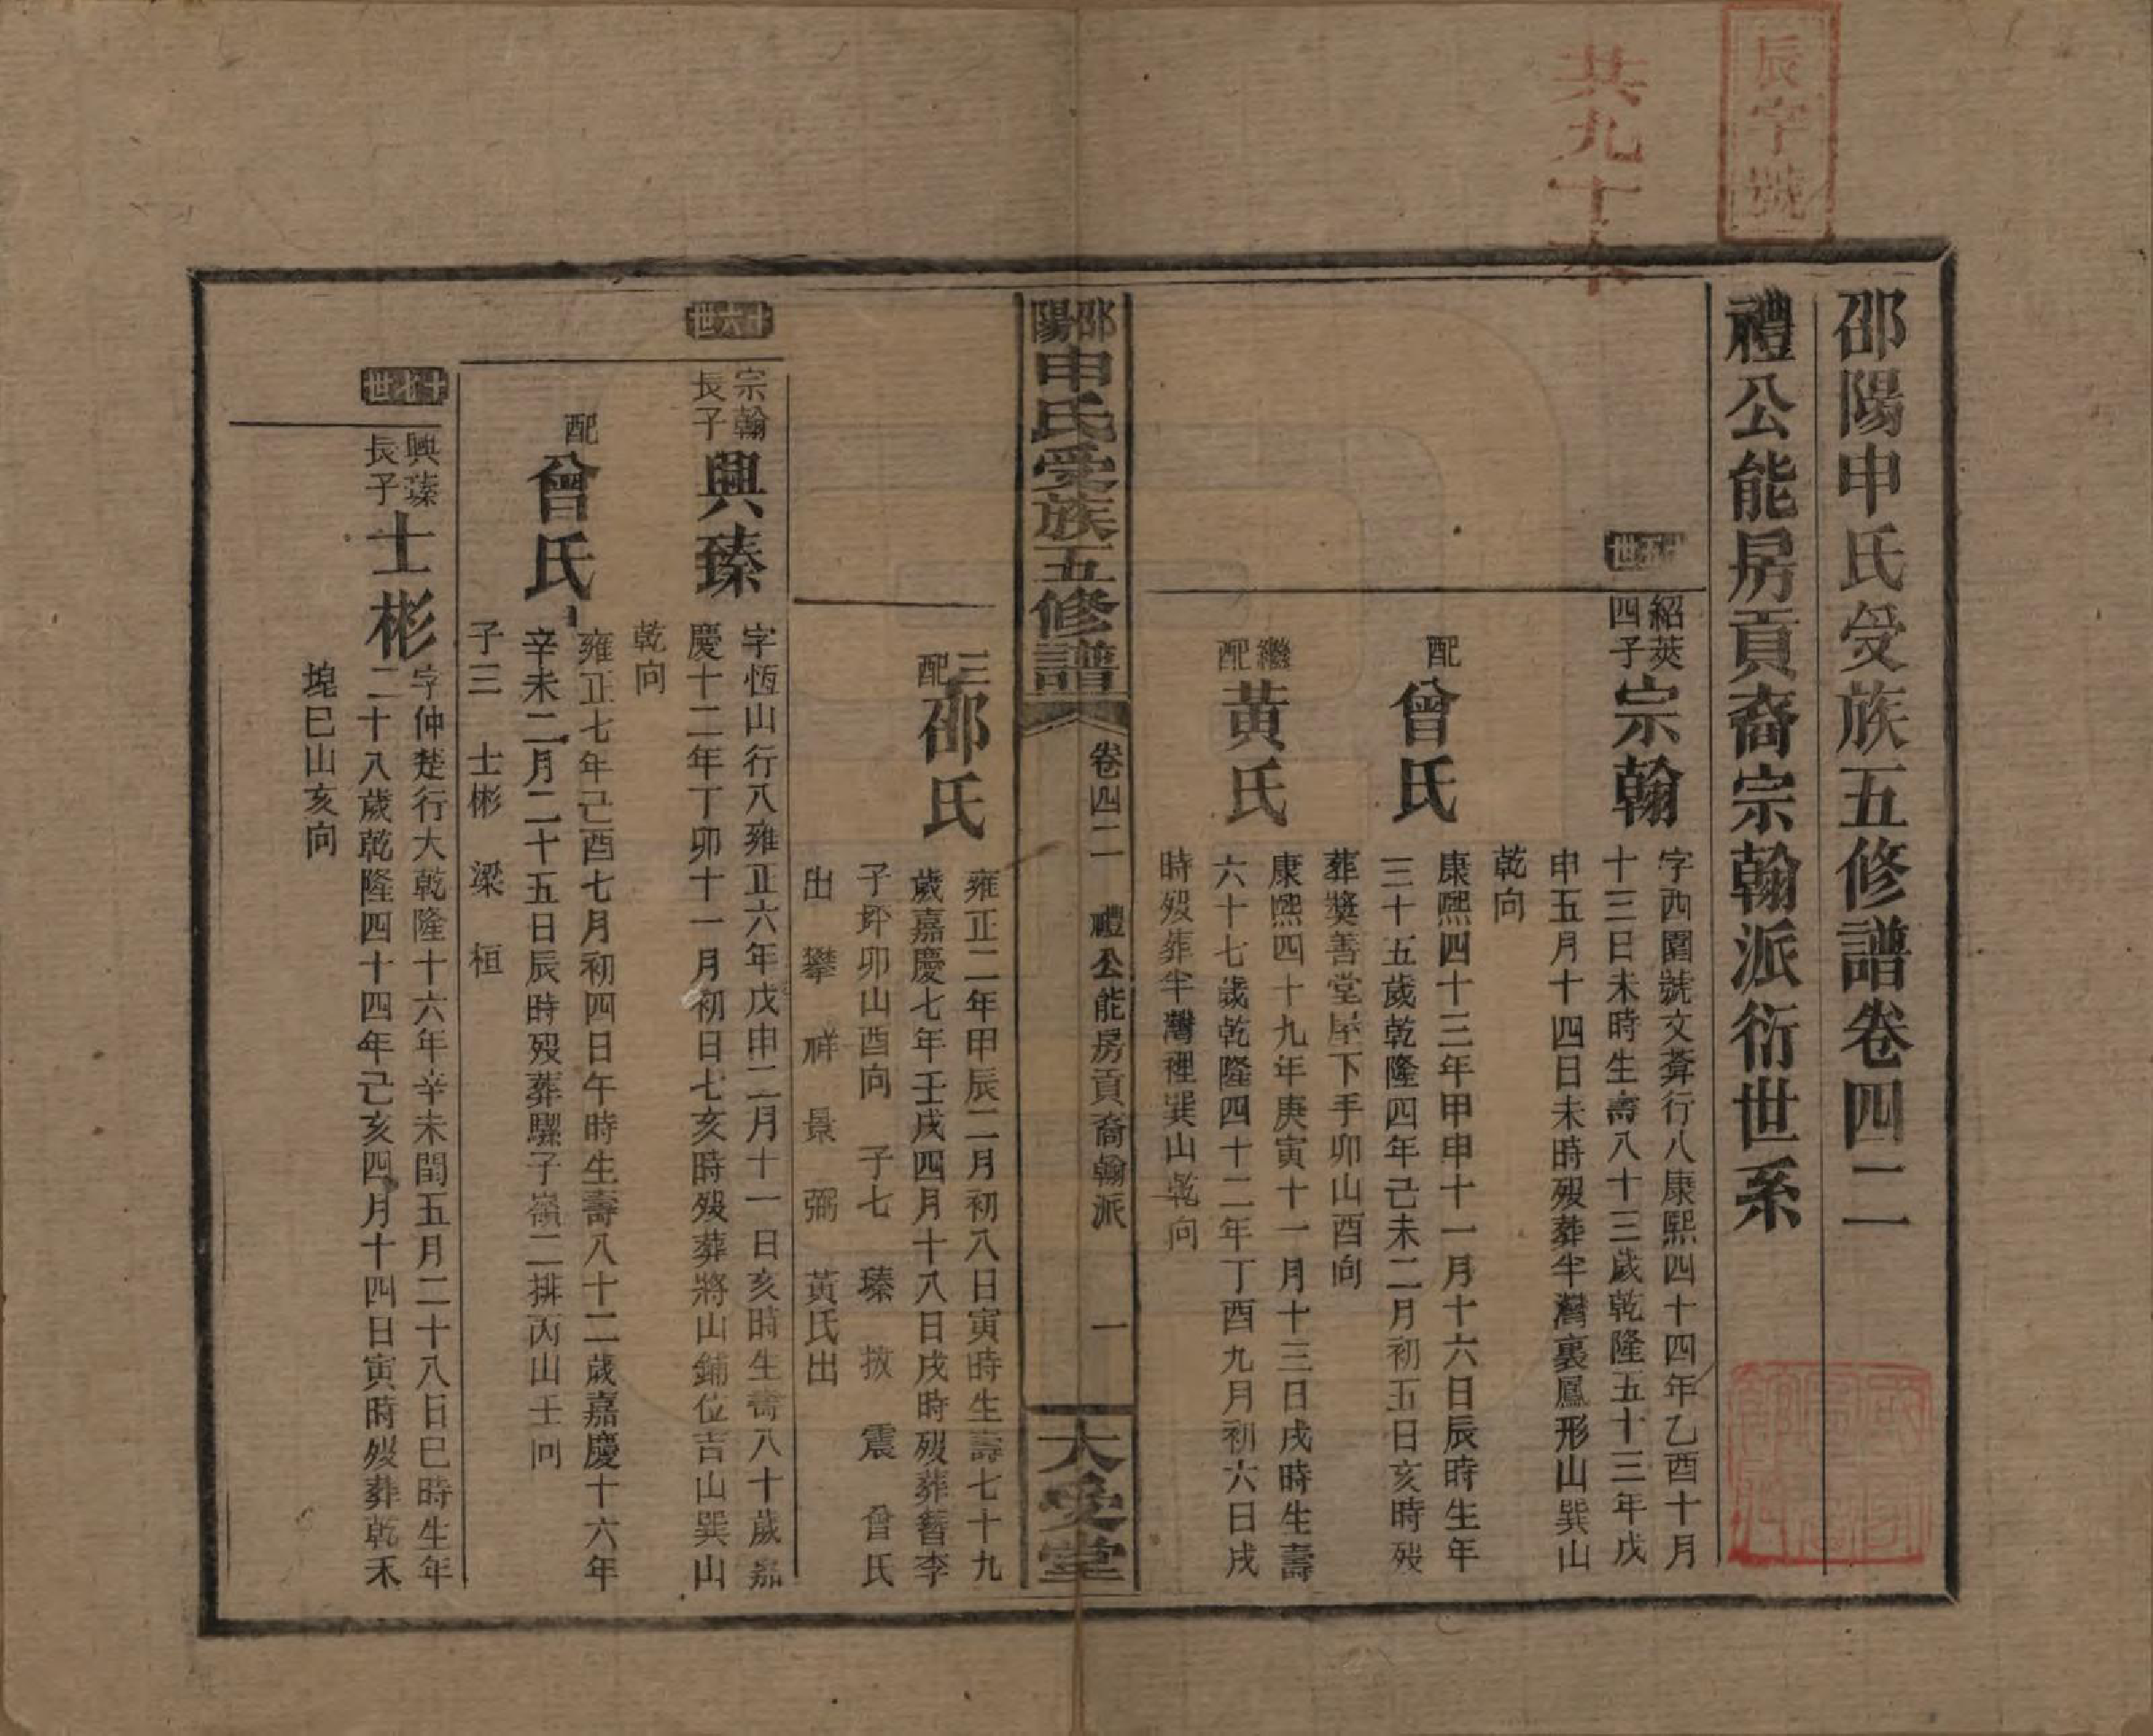 辰字號
共九十本
邵陽申氏受族五修譜卷四二
禮公能房貢裔宗翰派衍世系
十五世
紹莢
四子
宗翰
字西園號文莽行八康熙四十四年乙酉十月
十三日未時生壽八十三歲乾隆五十三年戊
申五月十四日未時歿葬半灣裏鳳形山巽山
乾向
配
曾氏
康熙四十三年甲申十一月十六日辰時生年
三十五歲乾隆四年己未二月初五日亥時歿
葬獎善堂屋下手卯山酉向
繼
配
黃氏
康熙四十九年庚寅十一月十三日戌時生壽
六十七歲乾隆四十二年丁酉九月初六日戌
時歿葬半灣裡巽山乾向
邵陽申氏受族五修譜
卷四二 禮公能房貢裔翰派 一
大受堂
三
配
邵氏
雍正二年甲辰二月初八日寅時生壽七十九
歲嘉慶七年壬戌四月十八日戌時歿葬替李
子坪卯山酉向 子七 臻 救 震 曾氏
出 攀 祥 景 弼 黃氏出
十六世
宗翰
長子
興臻
字恆山行八雍正六年戊申二月十一日亥時生壽八十歲嘉
慶十二年丁卯十一月初日七亥時歿葬將山鋪位吉山巽山
乾向
配
曾氏
雍正七年己酉七月初四日午時生壽八十二歲嘉慶十六年
辛未二月二十五日辰時歿葬騾子嶺二排丙山壬向
子三 士彬 梁 桓
十七世
興臻
長子
士彬
字仲楚行大乾隆十六年辛未閏五月二十八日巳時生年
二十八歲乾隆四十四年己亥四月十四日寅時歿葬乾禾
堍巳山亥向